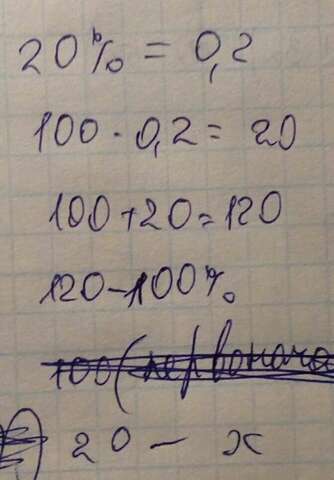 20% = 0,2
100 · 0,2 = 20
100 + 20 = 120
120 - 100%
100 (первонача
20 - x